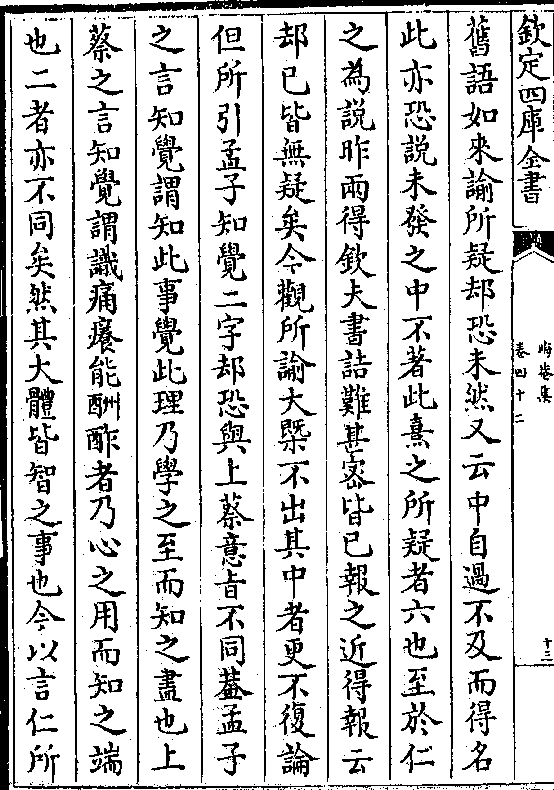 欽定四庫全書
晦菴集
卷四十二
十三
舊語如來諭所疑却恐未然又云中自過不及而得名
此亦恐說未發之中不著此熹之所疑者六也至於仁
之為說昨兩得欽夫書詰難甚宻皆已報之近得報云
却已皆無疑矣今觀所諭大槩不出其中者更不復論
但所引孟子知覺二字却恐與上蔡意㫖不同葢孟子
之言知覺謂知此事覺此理乃學之至而知之盡也上
蔡之言知覺謂識痛癢能酬酢者乃心之用而知之端
也二者亦不同矣然其大體皆智之事也今以言仁所